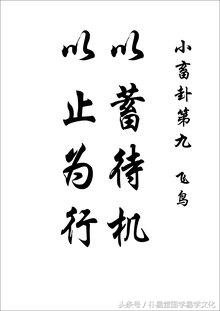 小畜卦第九 飞鸟
以蓄待机
以止为行
头条号 / 国学易学文化